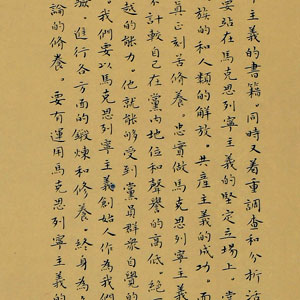 主義的書籍。同時又着重調查和分析活
要站在馬克思列寧主義的堅定立場上。當
族的和人類的解放。共產主義的成功。而
真正刻苦修養。忠實做馬克思列寧主義
不計較自己在黨內地位和聲譽的高低。絕
越的能力。他就能夠受到黨員群眾自覺的
。我們要以馬克思列寧主義創始人作為我們
驗。進行各方面的鍛煉和修養。終身為
論的修養。要有運用馬克思列寧主義的